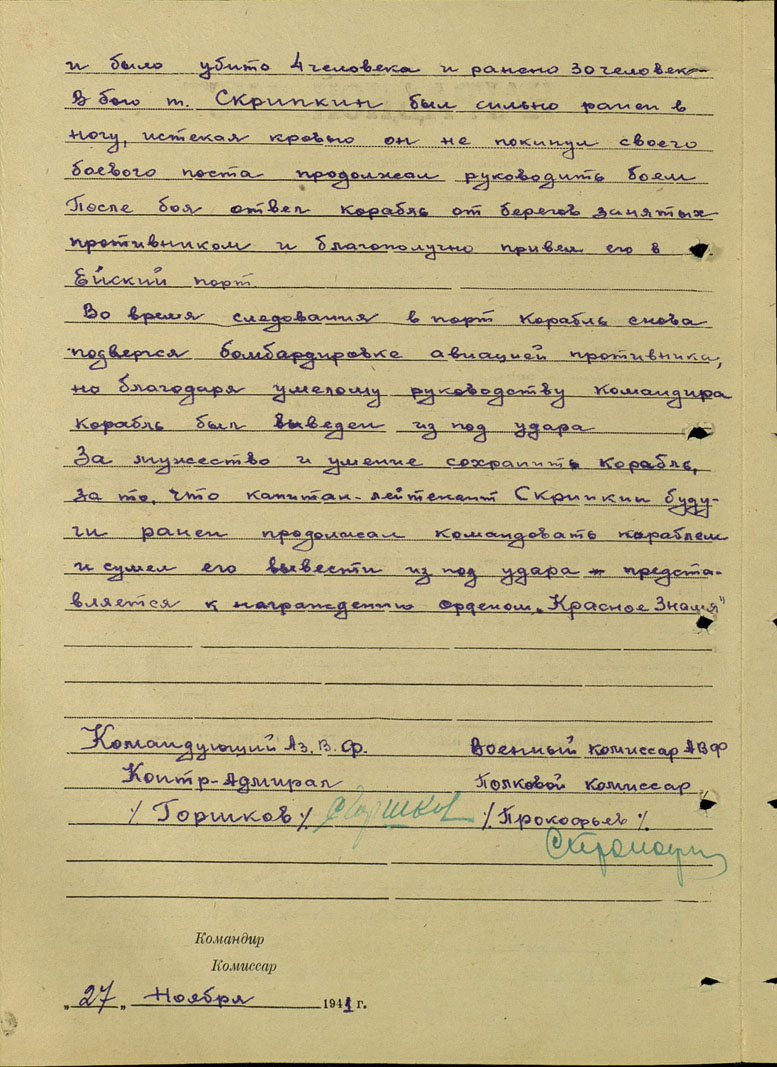 и было убито 4 человека и ранено 30 человек
В бою т. Скрипкин был сильно ранен в
ногу, истекая кровью он не покинул своего
боевого поста продолжал руководить боем
После боя отвел корабль от берегов занятых
противником и благополучно привел его в
Ейский порт.
Во время следования в порт корабль снова
подвергся бомбардировке авиацией противника,
но благодаря умелому руководству командира
корабль был выведен из под удара
За мужество и умение сохранить корабль,
за то, что капитан-лейтенант Скрипкин буду-
чи ранен продолжал командовать кораблем
и сумел его вывести из под удара - предста-
вляется к награждению орденом „Красное Знамя"
Командующий Аз. В. Ф. Военный комиссар АВФ
Контр-Адмирал Полковой комиссар
/ Горшков / СГоршков / Прокофьев /
Командир
Комиссар
„27„ Ноября 1941 г.